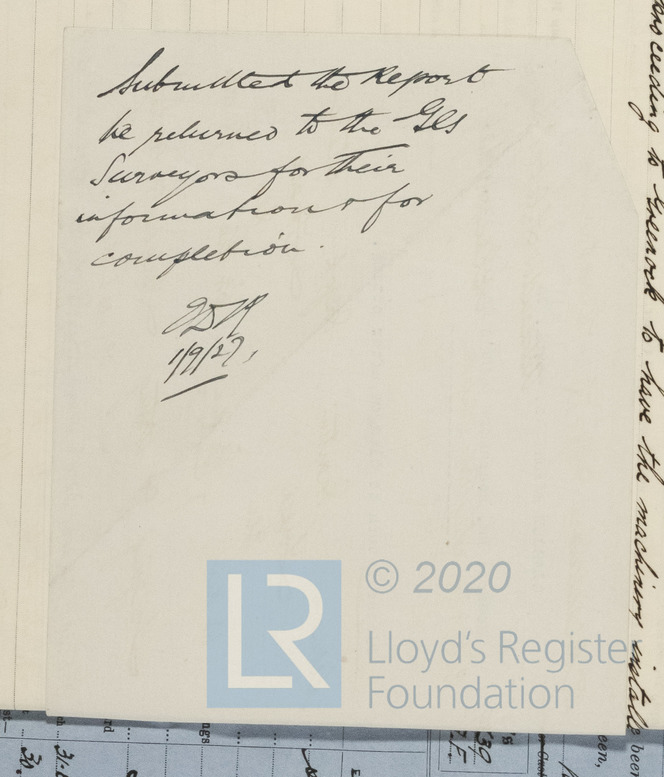 Submitted the Report
be returned to the Gls
Surveyors for their
information & for
completion.
1/9/27,
ceeding to Greenock to have the machinery installe
LR
© 2020
Lloyd's Register
Foundation
been
een,